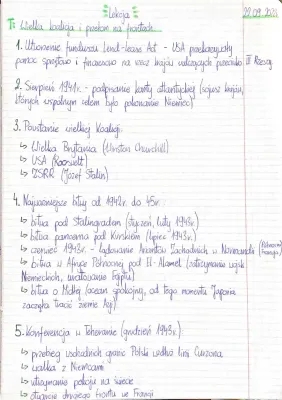 Lekcja 22.09.2021
T: Wielka koalicja i przełom na frontach.
1. Utworzenie funduszu Lend-lease Act - USA przekazywały
pomoc sprzętowo i finansowo na rzecz krajów walczących przeciwko III Rzeszy.
2. Sierpień 1941r. - podpisanie karty atlantyckiej (sojusz krajów,
których wspólnym celem było pokonanie Niemiec)
3. Powstanie wielkiej Koalicji:
↳ Wielka Brytania (Winston Churchill)
↳ USA (Roosvelt)
↳ ZSRR (Józef Stalin)
4. Najważniejsze bitwy od 1942r. do 45r.:
↳ bitwa pod Stalingradem (styczeń, luty 1943r.)
↳ bitwa pancerna pod Kurskiem (lipiec 1943r.)
↳ czerwiec 1943r. - lądowanie Aliantów Zachodnich w Normandii (Północna Francja)
↳ bitwa w Afryce Północnej pod El-Alamel (zatrzymanie wojsk
Niemieckich, uratowanie Egiptu)
↳ bitwa o Midłej (ocean spokojny, od tego momentu Japonia
zaczęła tracić ziemie Azji).
5. Konferencja w Teheranie (grudzień 1943r.):
↳ przebieg wschodnich granic Polski wzdłuż linii Curzona,
↳ walka z Niemcami
↳ utrzymanie pokoju na świecie
↳ otwarcie drugiego frontu we Francji